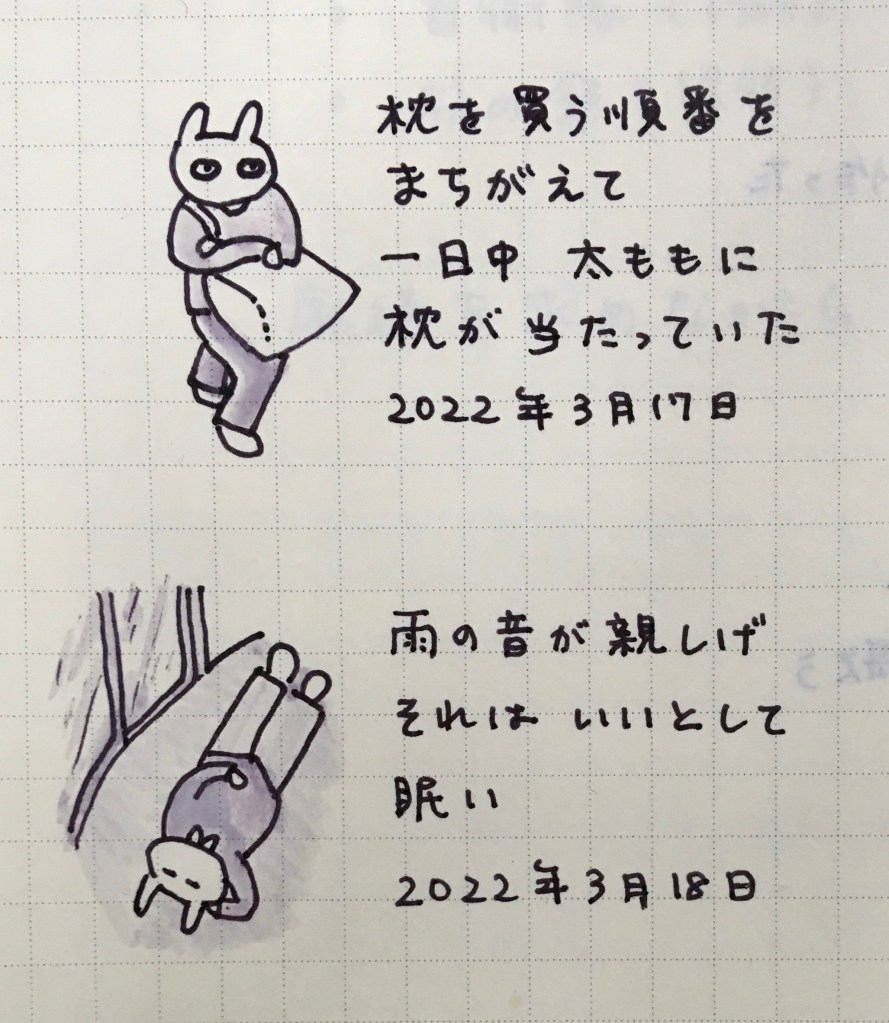 枕を買う順番を
まちがえて
一日中 太ももに
枕が当たっていた
2022年3月17日
雨の音が親しげ
それは いいとして
眠い
2022年3月18日